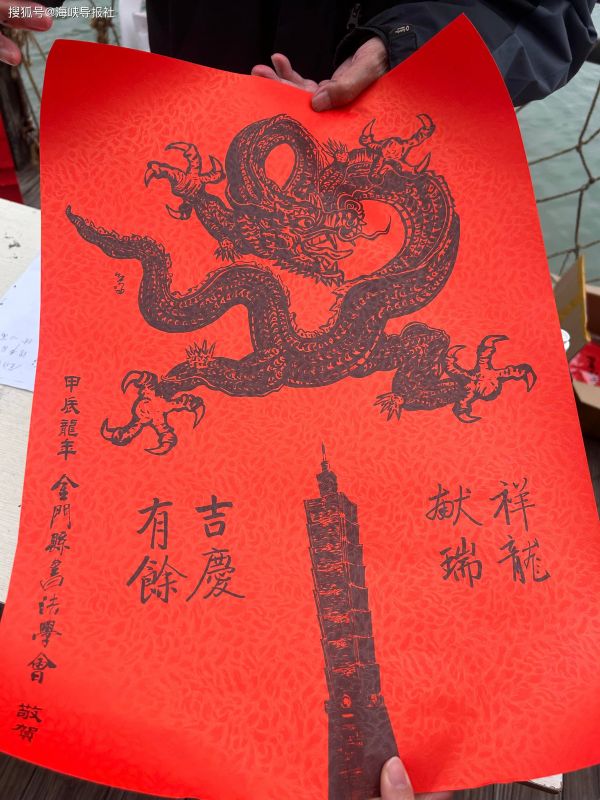 搜狐号@海峡导报社
祥龍
献瑞
吉慶
有餘
甲辰龍年 金門縣書法學會 敬賀